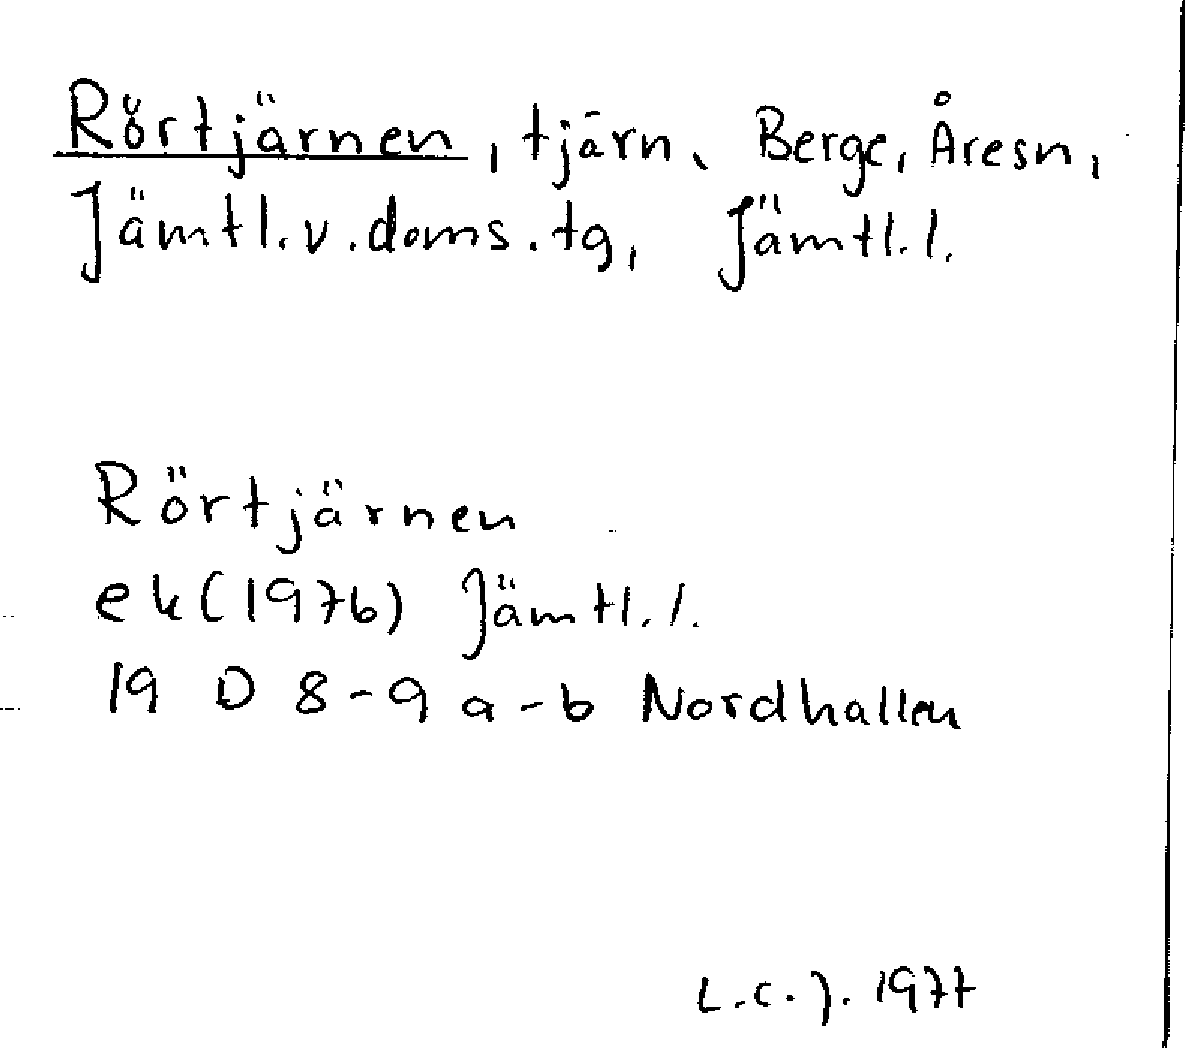 Rörtjärnen, tjärn, Berge, Åresn,
Jämtl.v.doms.tg, Jämtl.l.
Rörtjärnen
ek(1976) Jämtl.l.
19 D 8-9 a-b Nordhallen
L.C.J. 1977